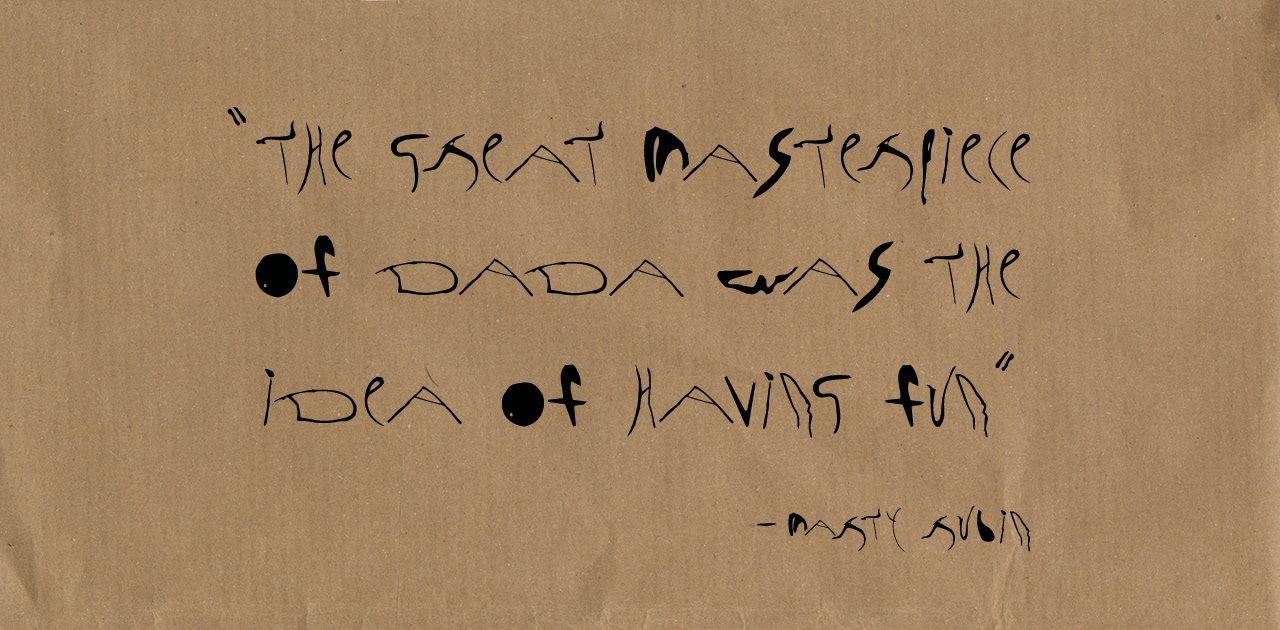 "THE GREAT MASTERPIECE
Of DADA WAS THE
iDEA Of HAVING fUN"
- MARTY RUBIN